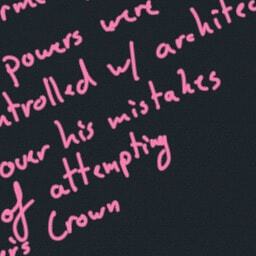 powers were
ntrolled w/ architec
over his mistakes
of attempting
er's Crown